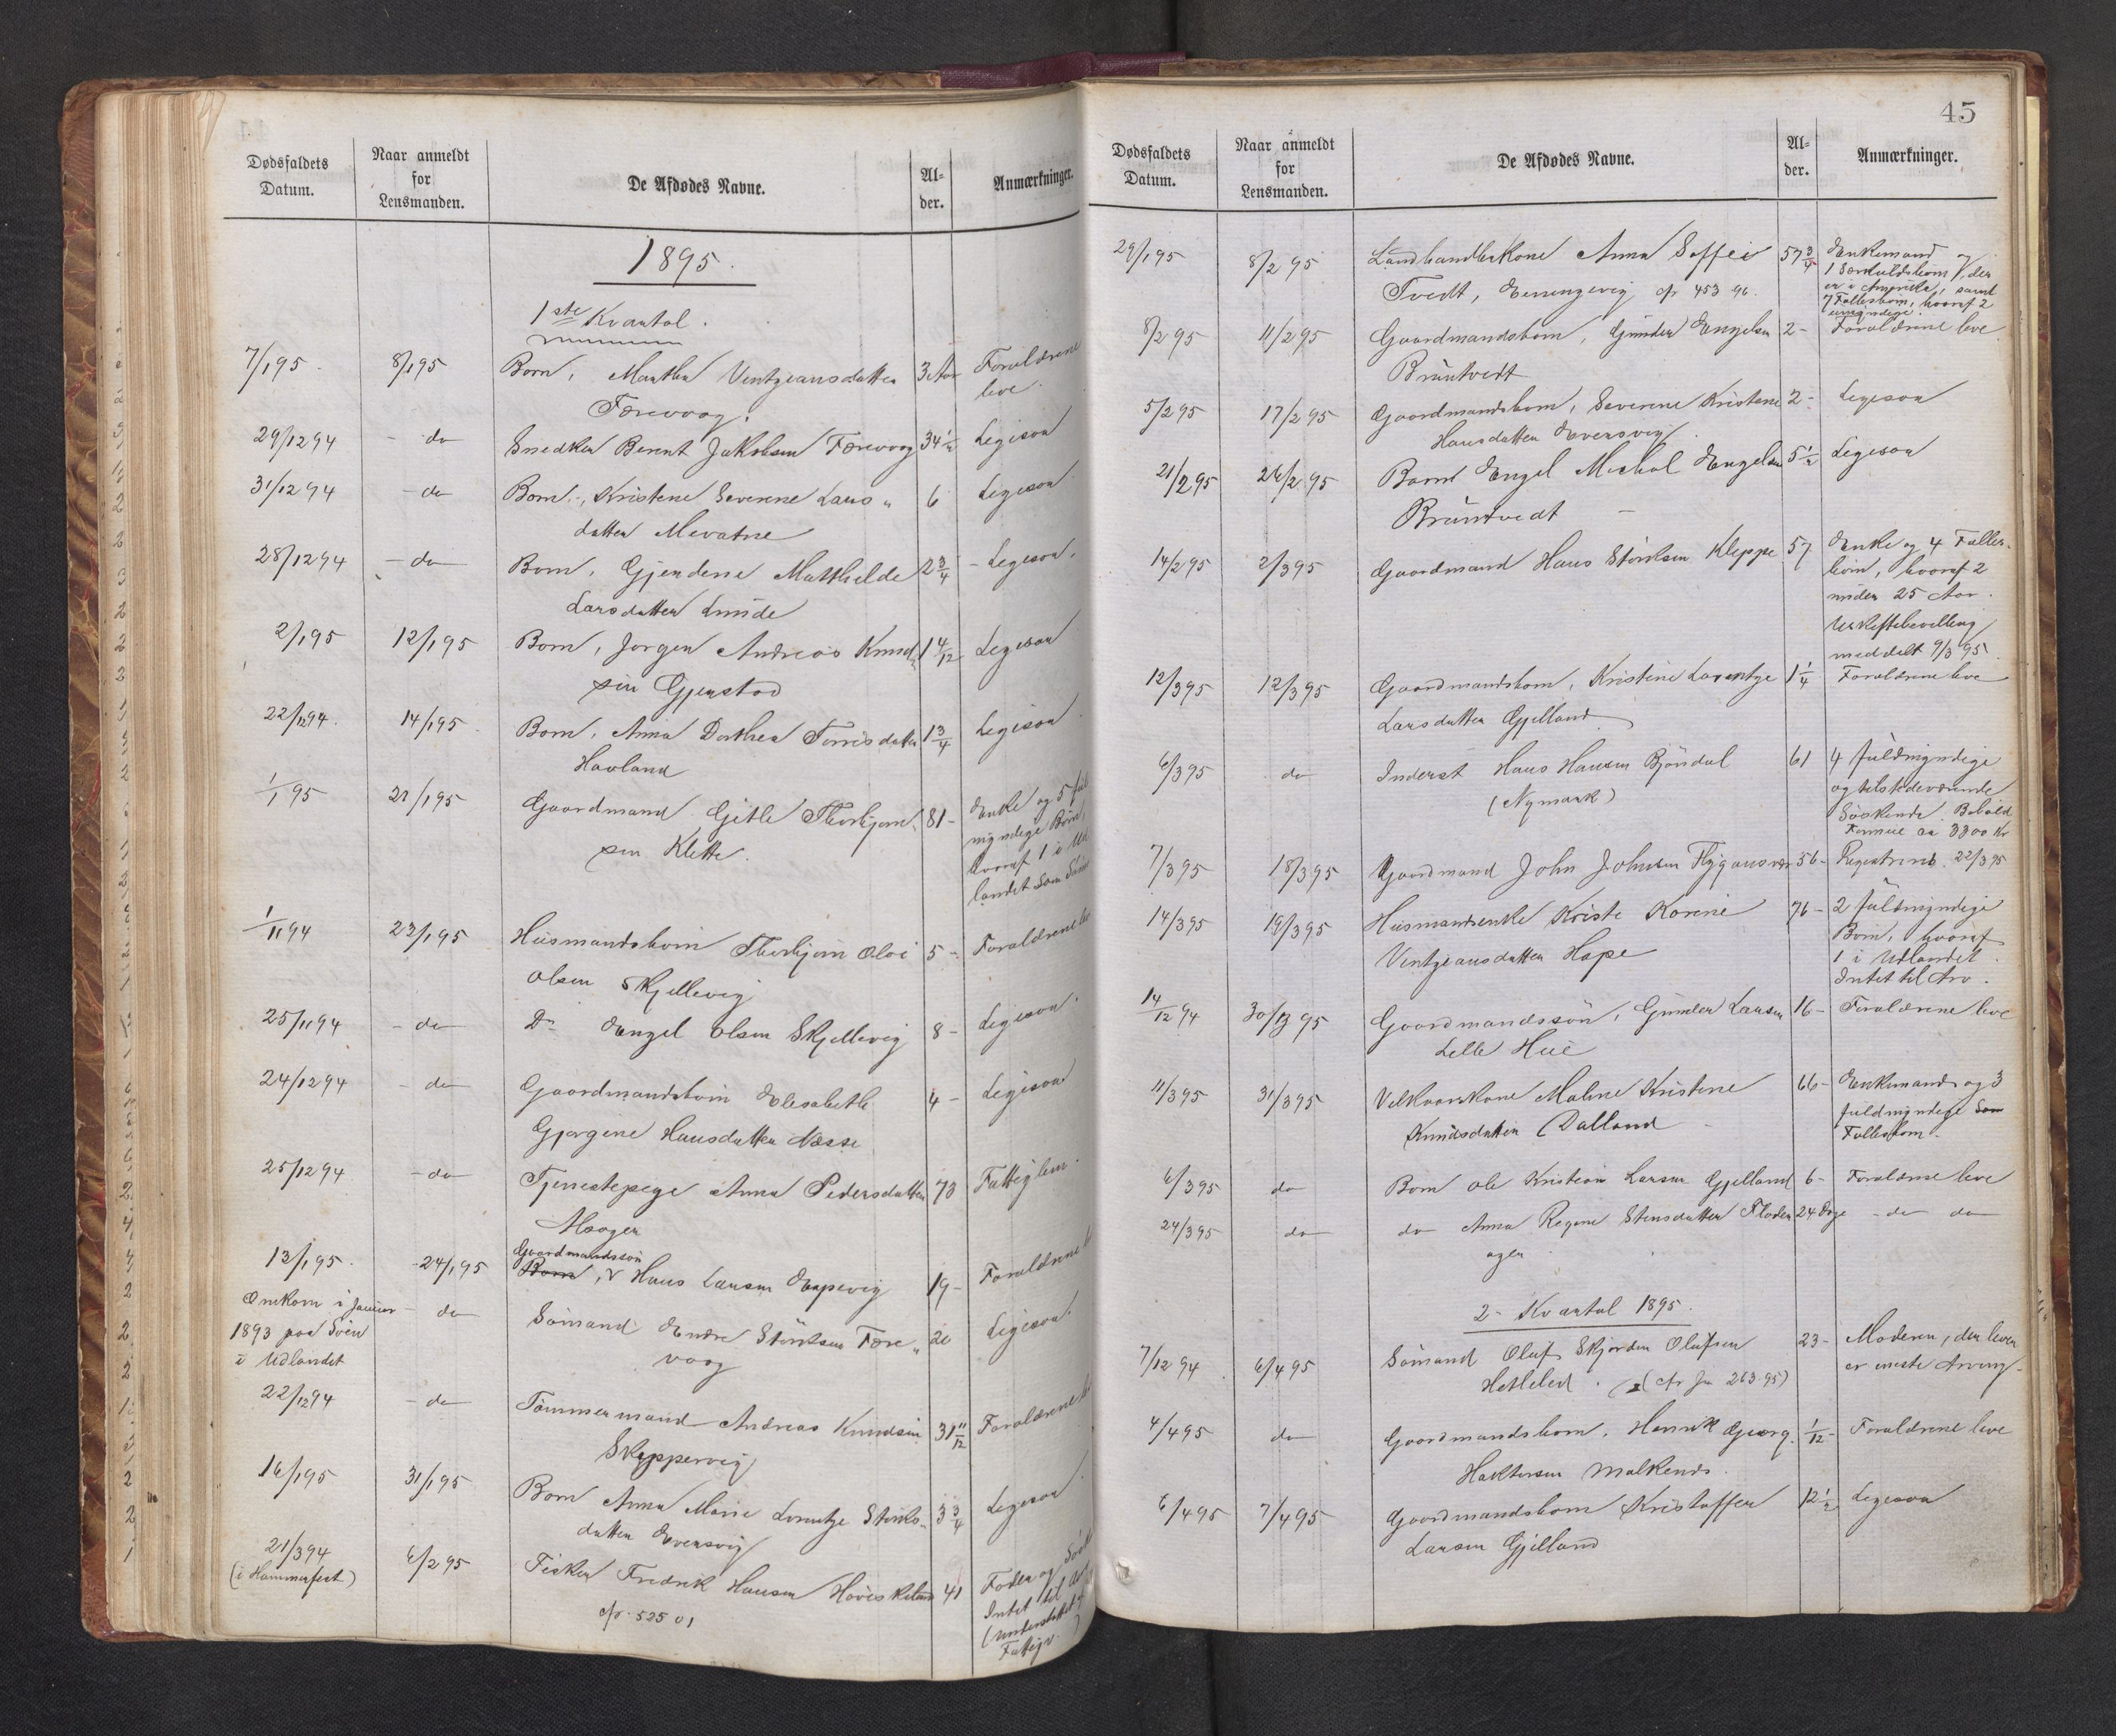 Dødsfaldets Datum.
Naar anmeldt for Lensmanden.
De Afdødes Navne.
Al-der.
Anmærkninger.
1895.
1ste Kvartal.
7/1 95. 8/1 95 Barn, Martha Ventzeansdatter 3 Aar Forældrene
Færevaag. leve.
29/12 94 - do Snedker Berent Jakobsen Færevaag 34 1/2 Ligesaa
31/12 94 - do Barn, Kristene Severine Lars- 6 Ligesaa
datter Mevatne
28/12 94 - do Barn, Gjendene Mathilde 2 3/4 - Ligesaa.
Larsdatter Lunde
2/1 95 12/1 95 Barn, Jørgen Andreas Knud- 1 4/12 Ligesaa
sen Gjerstad
22/12 94. 14/1 95 Barn, Anna Dorthea Torrisdatter 1 3/4 Ligesaa
Havland
1/1 95 21/1 95 Gaardmand Gitle Thorbjørn- 81 - Enke og 5 ful
sen Klette. myndige Børn,
hvoraf 1 i Ud
landet som
1/11 94 23/1 95 Husmandsbarn Thorbjørn Olai 5 - Forældrene le
Olsen Skjellevig
25/11 94 - do Do Engel Olsen Skjellevig 8 - Ligesaa.
24/12 94 - do Gaardmandsbarn Elisabeth 4 - Ligesaa
Gjørgine Hansdatter Næsse
25/12 94 - do Tjenestepige Anna Pedersdatter 73 Fattiglem.
Hauger
13/1 95. - 24/1 95 Gaardmandssøn
Barn, Hans Larsen Espevig 19 - Forældrene le
Omkom i Januar - do Sømand Endre Størksen Fære- 20 Ligesaa.
1893 paa Søen vaag
i Udlandet
22/12 94 - do Tømmermand Andreas Knudsen 31 11/12 Forældrene le
Skeppervig
16/1 95 31/1 95 Barn Anna Marie Lorentze Størks- 3 3/4 Ligesaa
datter Eversvig
21/3 94 6/2 95 Fisker Fredrik Hansen Høviskeland 41 Fader og Søsk
(i Hammerfest) cfr. 525 01 Intet til Arv
(understøttet af
Fattigv. )
45
Dødsfaldets Datum.
Naar anmeldt for Lensmanden.
De Afdødes Navne.
Al-der.
Anmærkninger.
29/1 95 8/2 95 Landhandlerkone Anna Soffie 57 3/4 Enkemand
Tvedt, Eenengevig cfr 453 96. 1 Særkuldsbarn, der
er i Amerika, samt
7 Fællesbørn, hvoraf 2
umyndige.
8/2 95 11/2 95 Gaardmandsbarn, Gunder Engelsen 2 - Forældrene leve
Bruntvedt
5/2 95 17/2 95 Gaardmandsbarn, Severine Kristene 2 - Ligesaa
Hansdatter Eversvig.
21/2 95 26/2 95 Barn Engel Mikal Engelsen 5 1/2 Ligesaa
Bruntvedt
14/2 95 2/3 95 Gaardmand Hans Størksen Kleppe 57 Enke og 4 Fælles-
børn, hvoraf 2
under 25 Aar.
Uskiftebevilling
meddelt 9/3 95.
12/3 95 12/3 95 Gaardmandsbarn, Kristine Lorentze 1 1/4 Forældrene leve
Larsdatter Gjelland
6/3 95 do Inderst Hans Hansen Bjøndal 61 4 fuldmyndige
(Nymark) og tilstedeværende
Søskende. Behold
Formue ca 3300 Kr
7/3 95 18/3 95 Gaardmand John Johnsen Flygansvær 56 - Registreret 22/3 95
14/3 95 19/3 95 Husmandsenke Kriste Korene 76 - 2 fuldmyndige
Ventzeansdatter Hope Børn, hvoraf
1 i Udlandet.
Intet til Arv.
14/12 94 30/3 95 Gaardmandssøn, Gunder Larsen 16 - Forældrene leve
Lille Hue
11/3 95 31/3 95 Vilkaarskone Maline Kristine 66 - Enkemand og 3
Knudsdatter Dalland fuldmyndige Sær
Fællesbørn.
6/3 95 do Barn Ole Kristian Larsen Gjelland 6 - Forældrene leve
24/3 95 do do Anna Regine Stensdatter Floden 24 Dage - do do
ager
2- Kvartal 1895.
7/12 94 6/4 95 Sømand Oluf Skjordin Olufsen 23 - Moderen, der lever
Hetleled. (cfr Jn 263. 95) er eneste Arving-
4/4 95 do Gaardmandsbarn, Henrik Georg 1/12 - Forældrene leve
Haktorsen Malkenes.
6/4 95 7/4 95 Gaardmandsbarn Kristoffer 12 1/2 Ligesaa
Larsen Gjelland